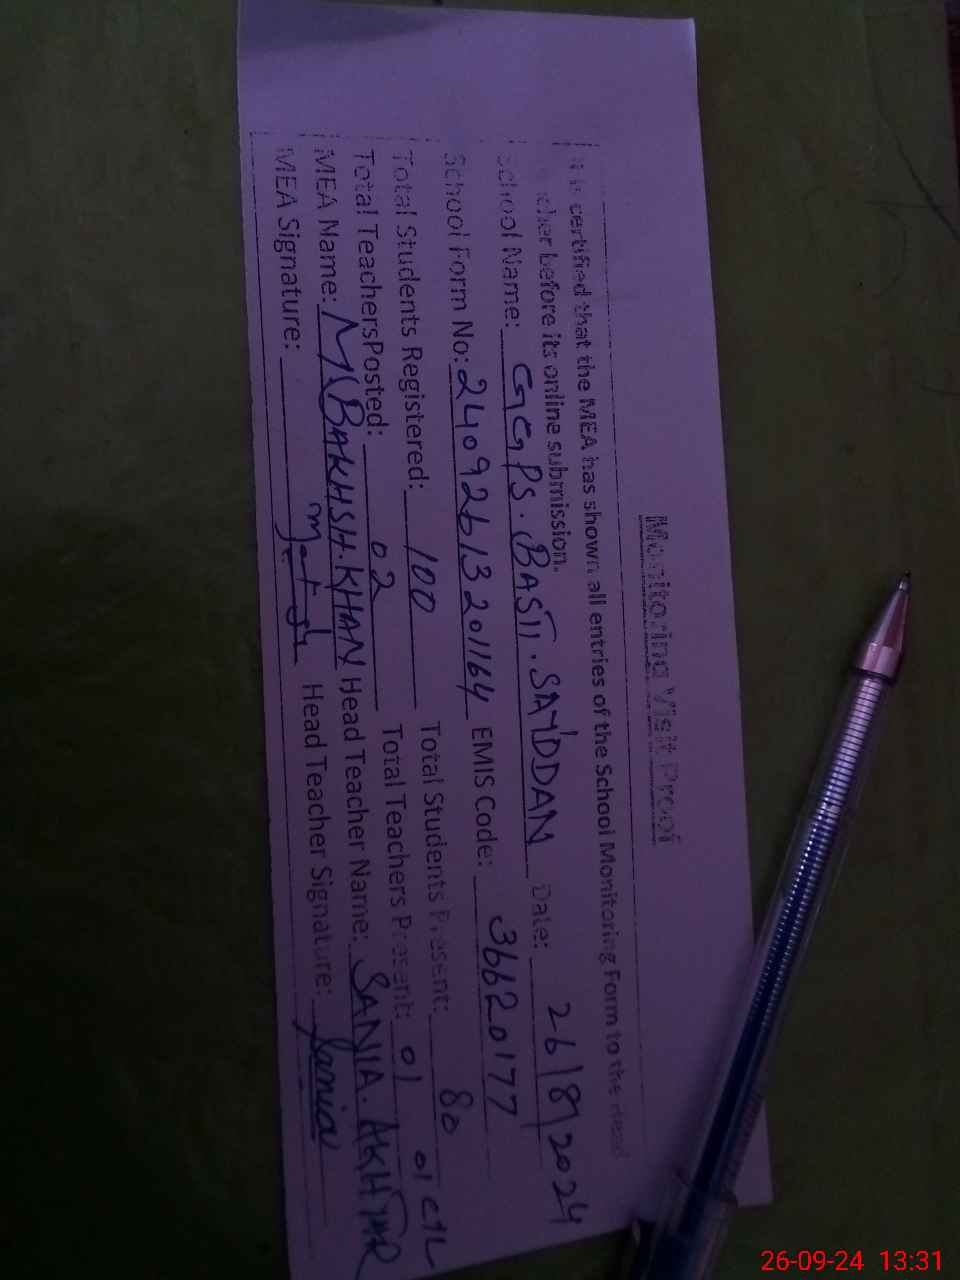 Monitoring Visit Proof
It is certified that the MEA has shown all entries of the School Monitoring Form to the Head
Teacher before its online submission.
School Name: GGPS. BASTI. SAYDDAN Date: 26/9/2024
School Form No: 24092613201164 EMIS Code: 36620177
Total Students Registered: 100 Total Students Present: 80
Total TeachersPosted: 02 Total Teachers Present: 01 01 C/L
MEA Name: M BAKHSH.KHAN Head Teacher Name: SANIA. AKHTAR
MEA Signature: Head Teacher Signature: Sania
26-09-24 13:31